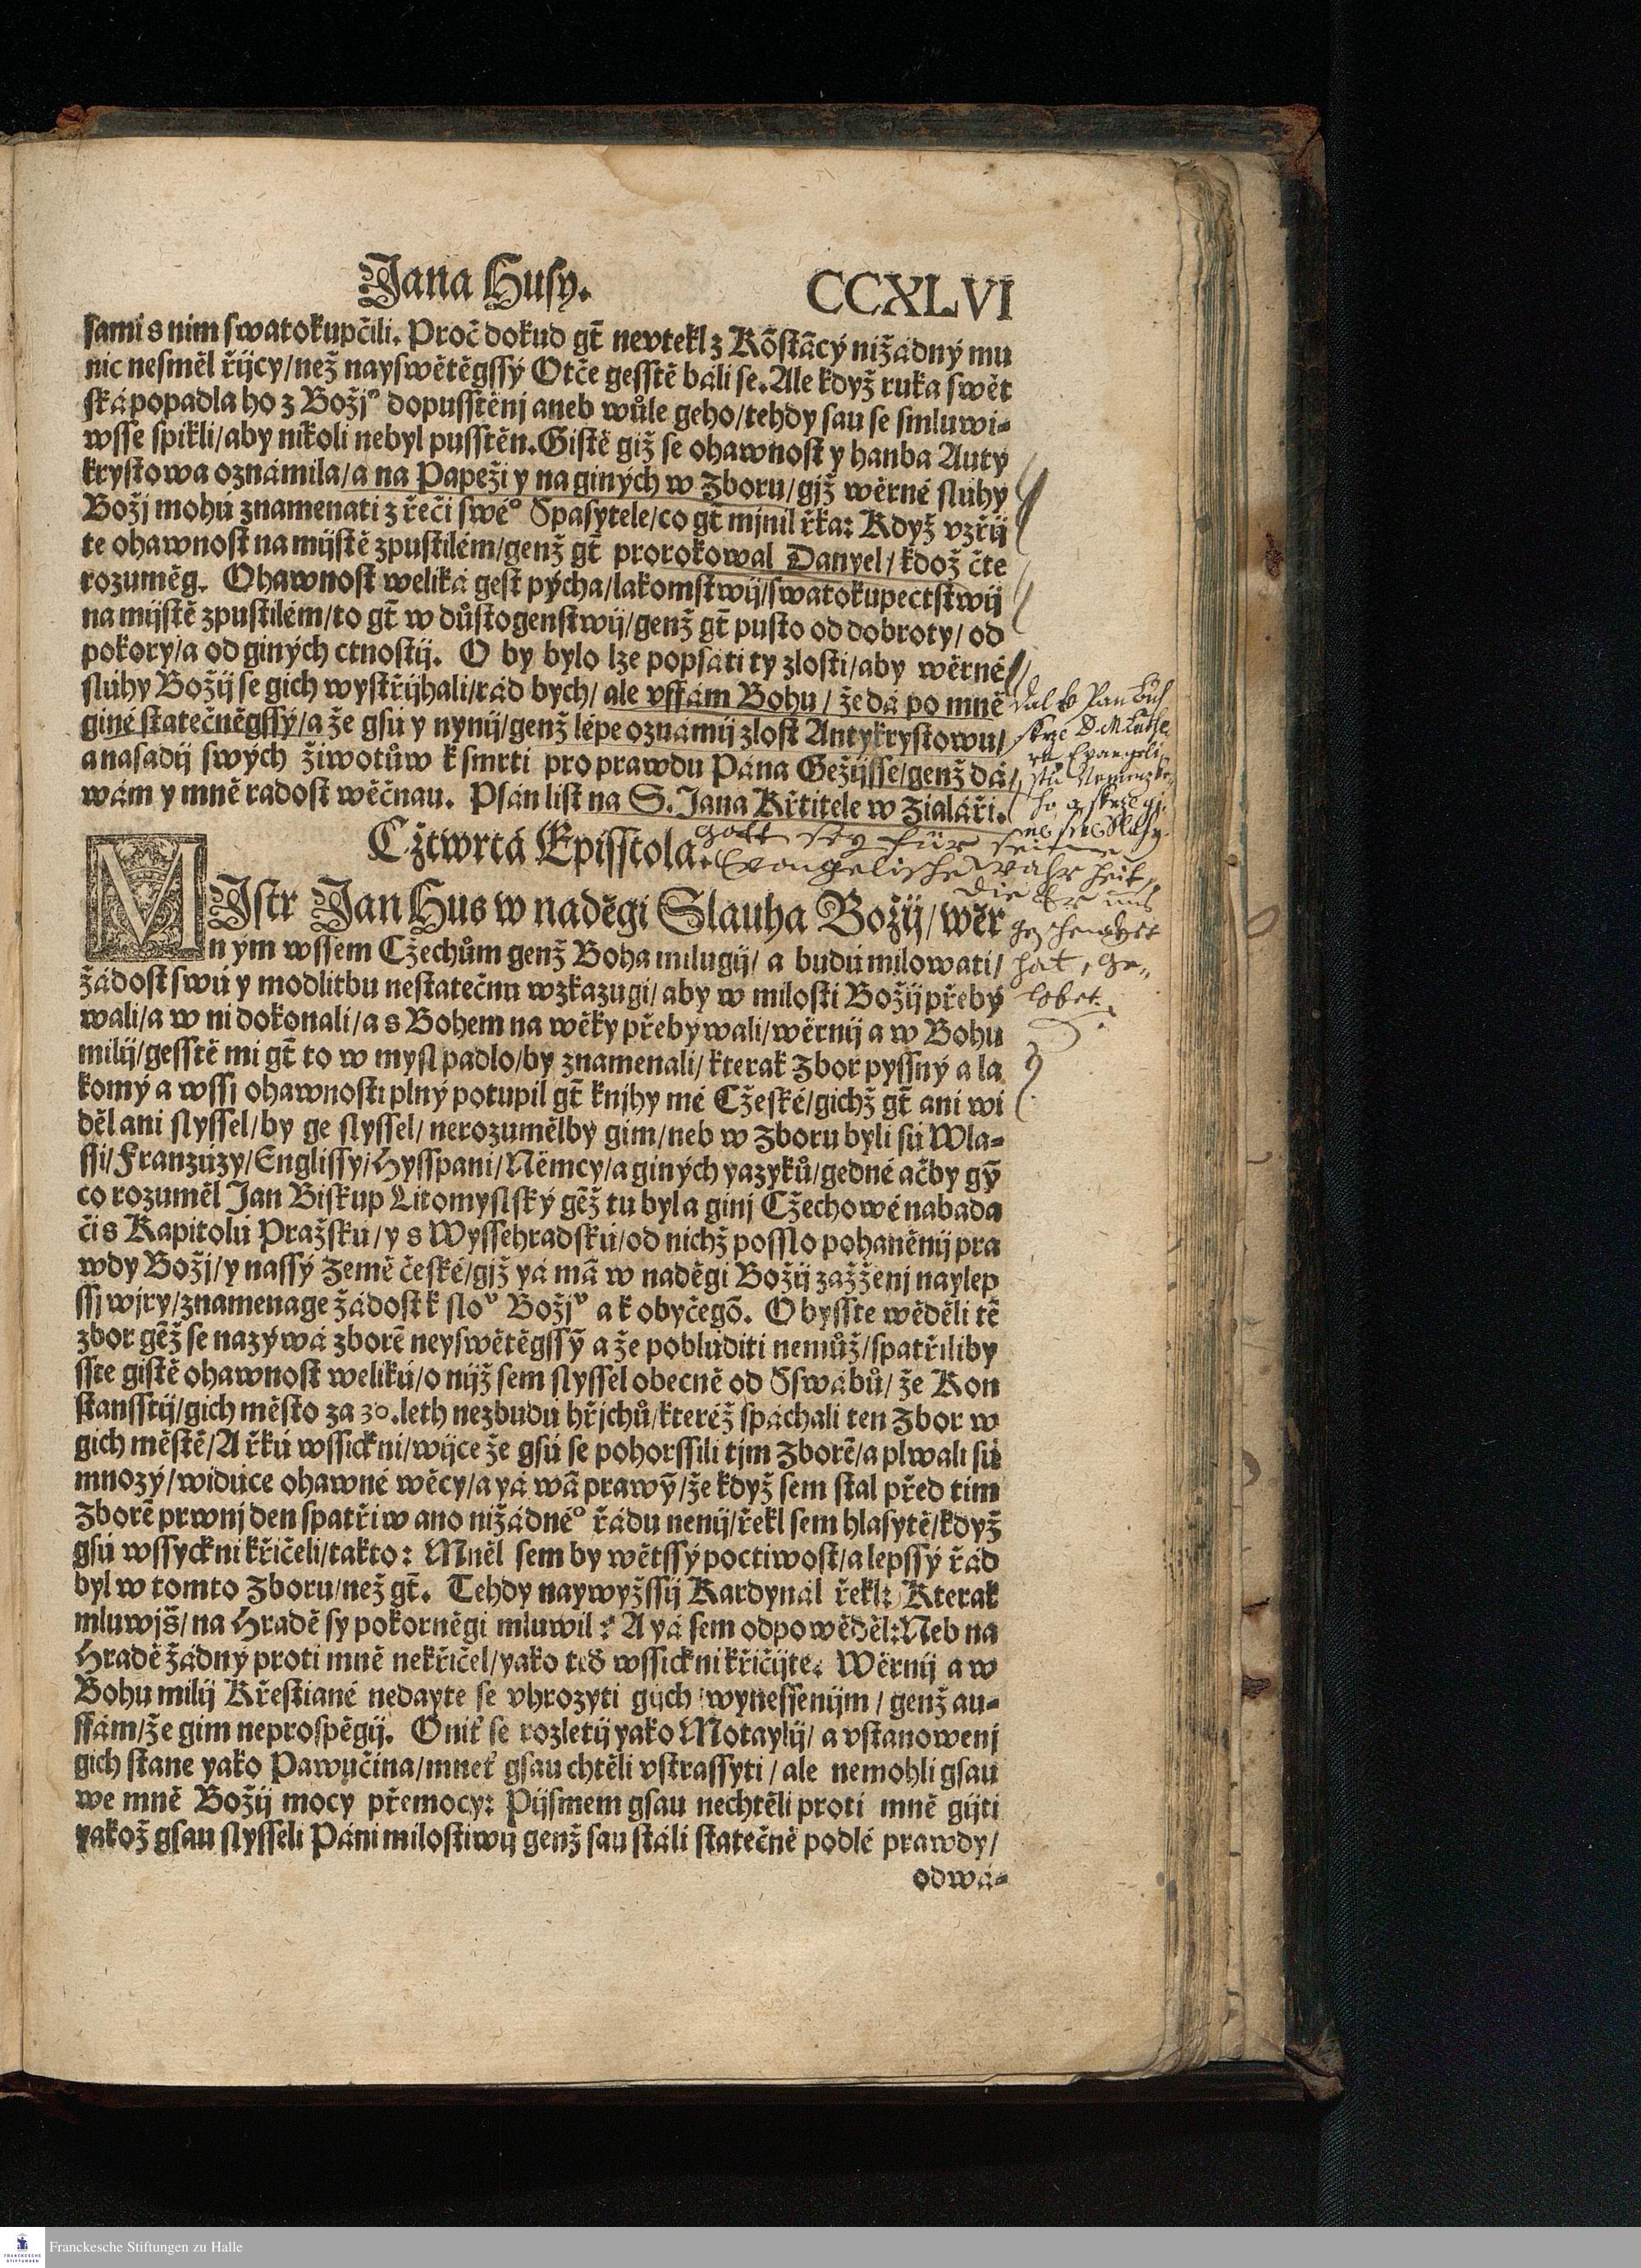 Jana Husy. CCXLVI
sami s nim swatokupčili. Proč dokud gt̄ nevtekl z Kōstācý nižádný mu
nic nesměl řijcy/než nayswětěgssý Otče gesstě báli se. Ale když ruka swět
ská popadla ho z Božj° dopusstěnj aneb wůle geho/tehdy sau se smluwi⸗
wsse spikli/aby nikoli nebyl pusstěn. Gistě giž se ohawnost y hanba Anty
krystowa oznámila/a na Papeži y na giných w Zboru/gjž wěrné sluhy
Božj mohú znamenati z řeči swé° Spasytele/co gt̄ mjnil řka: Když vzřij
te ohawnost na mijstě zpustilém/genž gt̄ prorokowal Danyel/kdož čte
rozuměg. Ohawnost weliká gest pýcha/lakomstwij/swatokupectstwij
na mijstě zpustilém/to gt̄ w důstogenstwij/genž gt̄ pusto od dobroty/od
pokory/a od giných ctnostij. O by bylo lze popsati ty zlosti/aby wěrné
sluhy Božij se gich wystřijhali/rád bych/ale vffám Bohu/že dá po mně
giné statečněgssý/a že gsú y nynij/genž lépe oznámij zlost Antykrystowu/
a nasadij swých žiwotůw k smrti pro prawdu Pána Gežijsse/genž dá
wám y mně radost wěčnau. Psán list na S. Jana Křtitele w Zialáři.
dal to Pan Buh
skrze D. M. Luthe
ra Evangeli
Cžtwrtá Episstola.
Gott sey für seine
Evangelische Wahrheit,
die Er uns
geschencket
hat, ge⸗
lobet.
MIstr Jan Hus w naděgi Slauha Božij/wěr
ným wssem Cžechům genž Boha milugij/a budú milowati/
žádost swú y modlitbu nestatečnu wzkazugi/aby w milosti Božij přebý
wali/a w ni dokonali/a s Bohem na wěky přebýwali/wěrnij a w Bohu
milij/gesstě mi gt̄ to w mysl padlo/by znamenali/kterak Zbor pyssný a la
komý a wssj ohawnosti plný potupil gt̄ knjhy mé Cžeské/gichž gt̄ ani wi
děl ani slyssel/by ge slyssel/nerozumělby gim/neb w Zboru byli sú Wla⸗
ssi/Franzuzy/Englissy/Hysspani/Němcy/a giných yazyků/gedné ačby gȳ
co rozuměl Jan Biskup Litomyslský gēž tu byl a ginj Cžechowé nabada
či s Kapitolú Pražskú/y s Wyssehradskú/od nichž possslo pohaněnij pra
wdy Božj/y nassý Země české/gjž yá mā w naděgi Božij zažženj naylep
ssj wjry/znamenage žádost k slo° Božj° a k obyčegō. O bysste wěděli tē
zbor gēž se nazýwá zborē neyswětěgssȳ a že poblúditi nemůž/spatřiliby
sste gistě ohawnost welikú/o nijž sem slyssel obecně od Sswábů/že Kon
stansstij/gich město za 30. leth nezbudú hřjchů/kteréž spáchali ten Zbor w
gich městě/A řkú wssickni/wijce že gsú se pohorssili tjm Zborē/a plwali sú
mnozý/widúce ohawné wěcy/a yá wā prawȳ/že když sem stál před tim
Zborē prwnj den spatřiw ano nižádné° řádu nenij/řekl sem hlasytě/když
gsú wssyckni křičeli/takto: Mněl sem by wětssý poctiwost/a lepssý řád
byl w tomto Zboru/než gt̄. Tehdy naywyžssij Kardynál řekl: Kterak
mluwjs̄/na Hradě sy pokorněgi mluwil? A yá sem odpowěděl: Neb na
Hradě žádný proti mně nekřičel/yako teď wssickni křičijte. Wěrnij a w
Bohu milij Křestiané nedayte se vhrozyti gijch wynessenijm/genž au⸗
ffám/že gim neprospěgij. Oniť se rozletij yako Motaylij/a vstanowenj
gich stane yako Pawučina/mneť gsau chtěli vstrassyti/ale nemohli gsau
we mně Božij mocy přemocy: Pijsmem gsau nechtěli proti mně gijti
yakož gsau slysseli Páni milostiwij genž sau stáli statečně podlé prawdy/
odwá⸗
Franckesche Stiftungen zu Halle